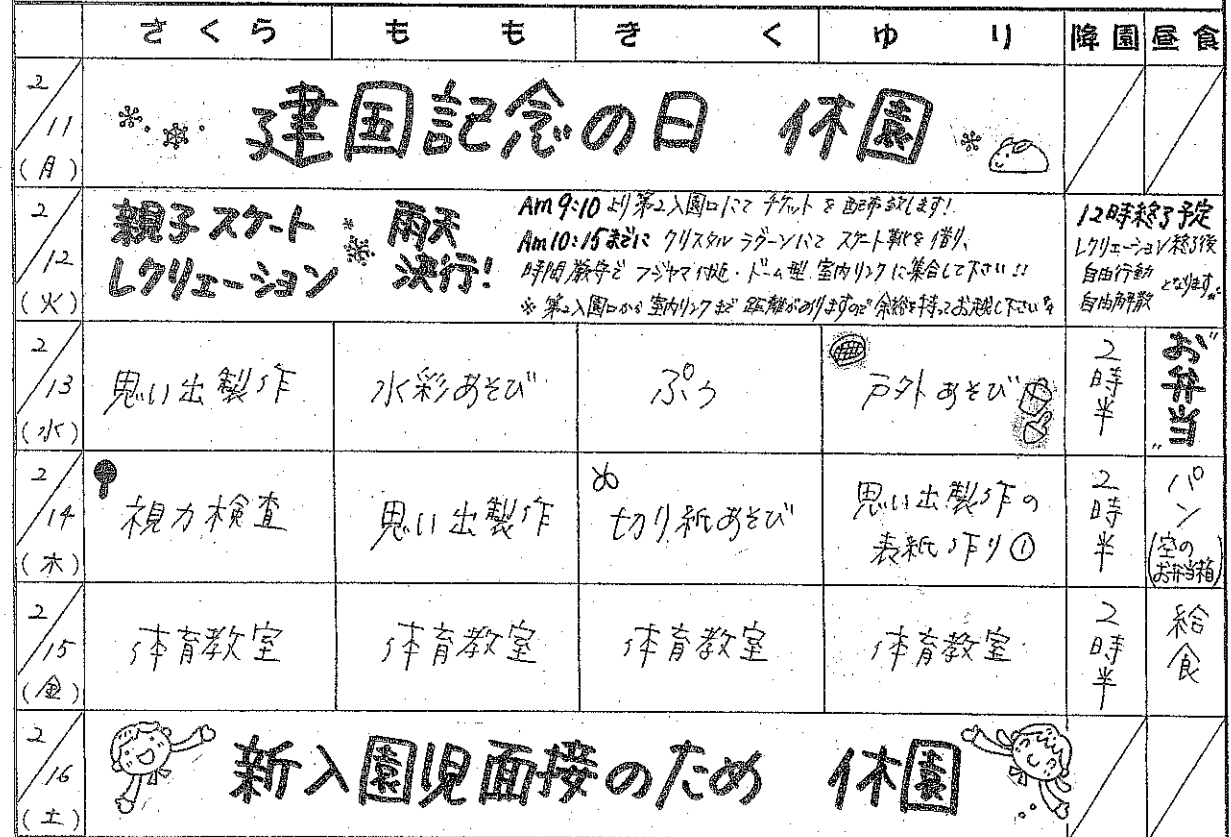 さくら もも きく ゆり 降園 昼食
2/11(月) 建国記念の日 休園
2/12(火) 親子スケートレクリエーション 雨天決行!
Am 9:10 より 第2入園口にて チケット を 配布致します!
Am10:15までに クリスタル ラグーンにて スケート靴を借り、
時間厳守で フジヤマ付近・ドーム型 室内リンクに集合して下さい!!
※ 第2入園口から 室内リンクまで 距離がありますので 余裕を持ってお越し下さい
12時終了予定
レクリエーション終了後
自由行動
自由解散
となります。
2/13(水) 思い出製作 水彩あそび ぷぅ 戸外あそび 2時半 "お弁当"
2/14(木) 視力検査 思い出製作 切り紙あそび 思い出製作の
表紙作り① 2時半 パン
(空の
お弁当箱)
2/15(金) 体育教室 体育教室 体育教室 体育教室 2時半 給食
2/16(土) 新入園児面接のため 休園